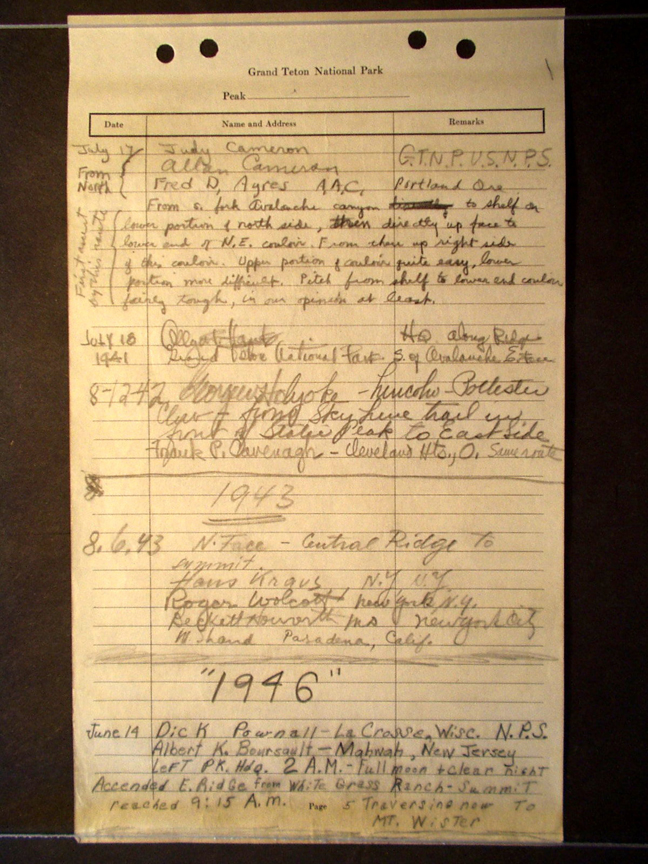 Grand Teton National Park
Peak
Date Name and Address Remarks
July 17 Judy Cameron G.T.N.P. U.S.N.P.S.
Allan Cameron
From North Fred D. Ayres A.A.C. Portland Ore
First ascent by this route
From S. fork Avalanche canyon to shelf on
lower portion of north side, then directly up face to
lower end of N.E. couloir. From there up right side
of this couloir. Upper portion of couloir quite easy, lower
portion more difficult. Pitch from shelf to lower end couloir
fairly tough, in our opinion at least.
July 18 HQ along Ridge
1941 Grand Teton National Park S. of Avalanche
8-12-42 Holyoke - Lincoln
from Skyline trail in
front of Static Peak to East Side
Frank P. Cavenagh - Cleveland Hts., O. Same route
8
1943
8.6.43 N. Face - Central Ridge to
summit.
Hans Kraus N.Y. N.Y.
Roger Wolcott New York N.Y.
Beckett Howorth MD New York City
W Shand Pasadena, Calif.
"1946"
June 14 Dick Pownall - La Crosse, Wisc. N.P.S.
Albert K. Boursault - Mahwah, New Jersey
Left PK. Hdq. 2 A.M. - Full moon + clear night
Accended E. Ridge from White Grass Ranch - Summit
reached 9:15 A.M. Page 5 Traversing now To
MT. Wister